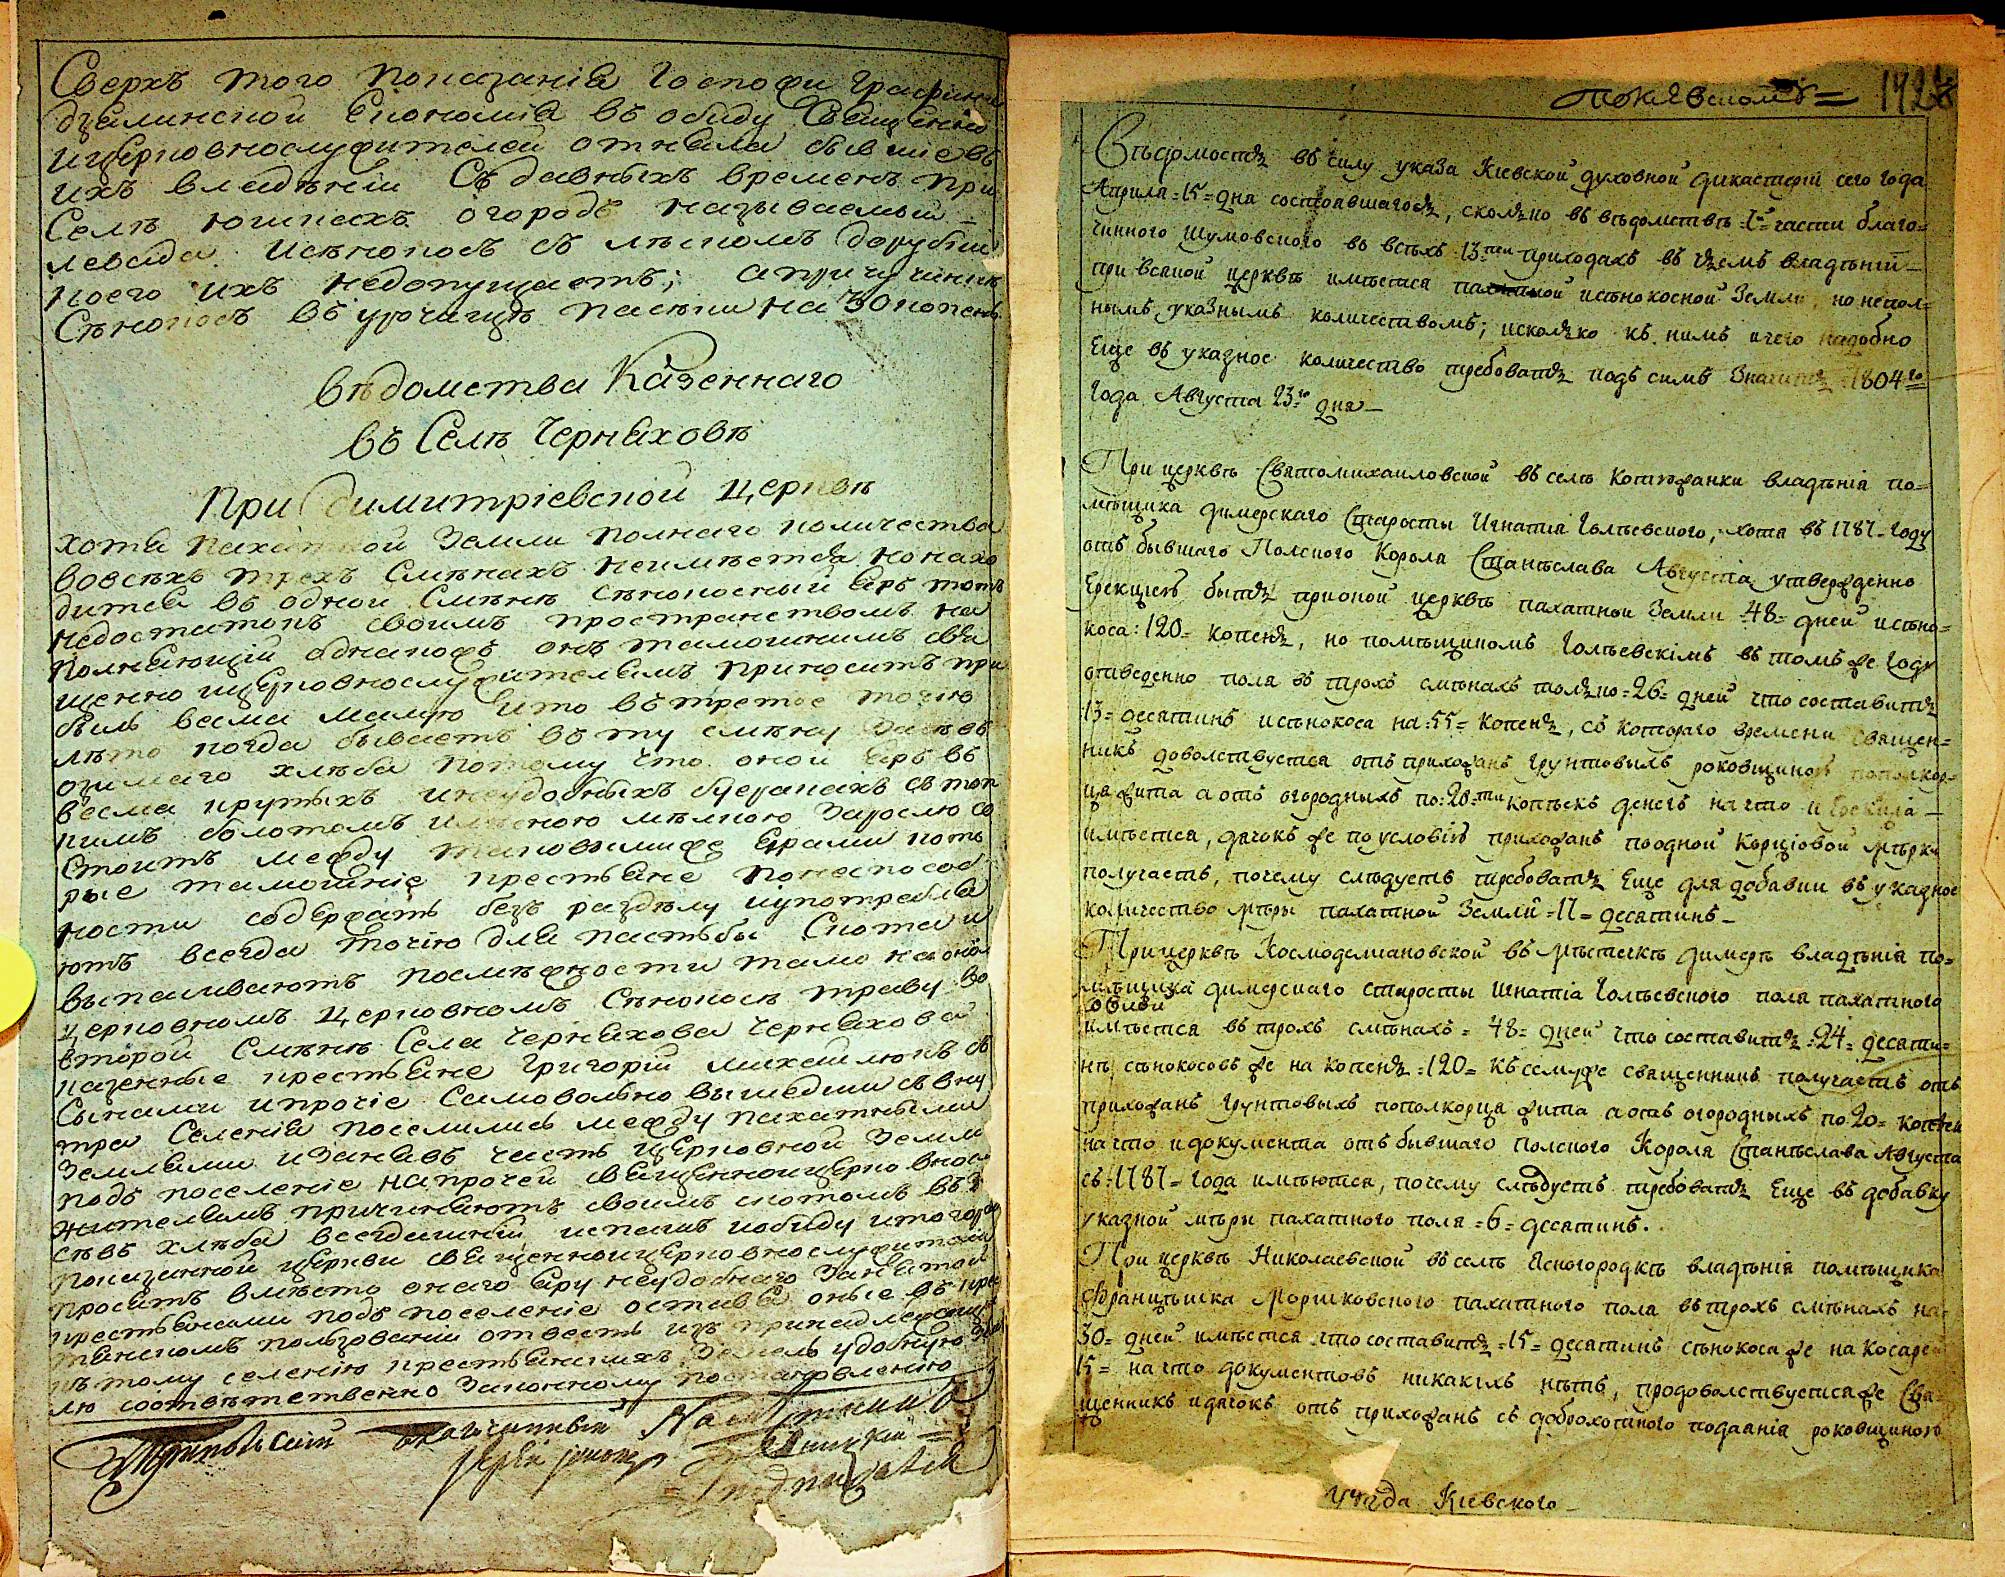 Сверхъ того показанія Госпожи Графини
дзялинской Економія въ обиду Священно
ицерковнослужителей отняла бывшіе въ
ихъ владѣніи Съ давныхъ временъ при
Селѣ огородъ называемый
левада исѣнокосъ съ лѣскомъ
коего ихъ недопущаетъ;
Сѣнокосъ въ урочищѣ пасѣки на 30 копенъ
вѣдомства Казеннаго
въ Селѣ Черняховѣ
При Димитріевской Церквѣ
хотя пахатной Земли полнаго количества
вовсѣхъ трехъ Смѣнахъ неимѣется но нахо
дится въ одной Смѣнѣ сѣнокосный яръ тотъ
недостатокъ своимъ пространствомъ на
полняющій однакожъ онъ тамошнимъ свя
щенно ицерковнослужителямъ приноситъ при
быль весма малую что въ третое точію
лѣто когда бываетъ въ ту смѣну засѣвъ
озимаго хлѣба потому что оной яръ въ
весма крутыхъ инеудобныхъ буеракахъ съ топ
кимъ болотомъ мѣлкою зарослю со
стоитъ между таковымиже ярами кото
рые тамошніе крестьяне понеспособ
ности содержатъ безъ раздѣлу иупотребля
ютъ всегда точію для пастьбы Скота и
выпасываютъ посмѣжности тамо на оном
церковномъ Церковномъ Сѣнокосѣ траву Во
второй Смѣнѣ Села Черняхова Черняховс
казенные крестьяне Григорій Михайлюкъ съ
Сынами ипрочіе Самовольно вышедши съ вну
тра Селенія поселились между пахатными
Землями изанявъ часть церковной Земли
подъ поселеніе напрочей священноицерковнос
жителямъ причиняютъ своимъ скотомъ въ
сѣвѣ хлѣба всегдашній иобиду
показанной церкви священноицерковнослужители
просятъ вмѣсто онаго яру неудобнаго занятой
крестьянами подъ поселеніе оставя оные въ
пользованіи отвесть изъ принадлежащ
къ тому селенію крестьянскихъ земель удобную
лю соотвѣтственно Законному постановленію
благочинный

токіевскомъ = 142
Вѣдомость въ силу указа Кіевской духовной дикастеріи сего года
Априля =15= дня состоявшагось, сколько въ вѣдомствѣ =1й= части благо=
чинного Шумовского во всѣхъ 13ти приходахъ въ чемъ владѣніи
при всякой церквѣ имѣется пахатной исѣнокосной Земли, но непол=
нымъ указнымъ количествомъ; исколько къ нимъ ичего надобно
Еще въ указное количество требовать подъ симъ Значитъ 1804го
Года Августа 23го дня
При церквѣ Святомихаиловской въ селѣ Котюжанки владѣнія по=
мѣщика димерскаго Старосты Игнатія Голѣевского, хотя въ 1787= году
отъ бывшаго Полского Короля Станѣслава Августа утвержденно
Ерекціею быть прионой церквѣ пахатной Земли =48= дней исѣно=
коса: 120= копень, но помѣщикомъ Голѣевскімъ въ томъ же году
отведенно поля въ трохъ смѣнахъ только =26= дней что составитъ
13= десятинъ исѣнокоса на =55= копень, съ котораго времени Священ=
никъ доволствуется отъ прихожанъ грунтовыхъ роковщиною пополкор=
ца жита а отъ огородныхъ по =20=ти копѣекъ денегъ на что и Ерекція
имѣется, дячокъ же по условію прихожанъ поодной Корціовой мѣрки
получаетъ, почему слѣдуетъ требовать Еще для добавки въ указное
количество мѣры пахатной Земли =11= десятинъ
При церквѣ Космодемяновской въ мѣстечкѣ димерѣ владѣнія по=
мѣщика димерскаго старосты Игнатія Голѣевского поля пахатного
имѣется въ трохъ смѣнахъ = 48= дней что составитъ =24= десяти=
нѣ сѣнокосовъ же на копень =120= къ семуже священникъ получаетъ отъ
прихожанъ грунтовыхъ пополкорца жита а отъ огородныхъ по 20= копѣекъ
на что и документа отъ бывшаго Полского Короля Станѣслава Августа
съ =1787= года имѣются, почему слѣдуетъ требовать Еще въ добавку
указной мѣры пахатного поля =6= десятинъ.
При церквѣ Николаевской въ селѣ Ясногородкѣ владѣнія помѣщика
Францѣшка пахатного поля въ трохъ смѣнахъ на=
30= дней имѣется что составитъ =15= десятинъ сѣнокоса же на косарей
15= на что документовъ никакіхъ нѣтъ, продоволствуетсяже Свя=
щенникъ идячокъ отъ прихожанъ съ доброхотного подаянія роковщиною
уѣзда Кіевского